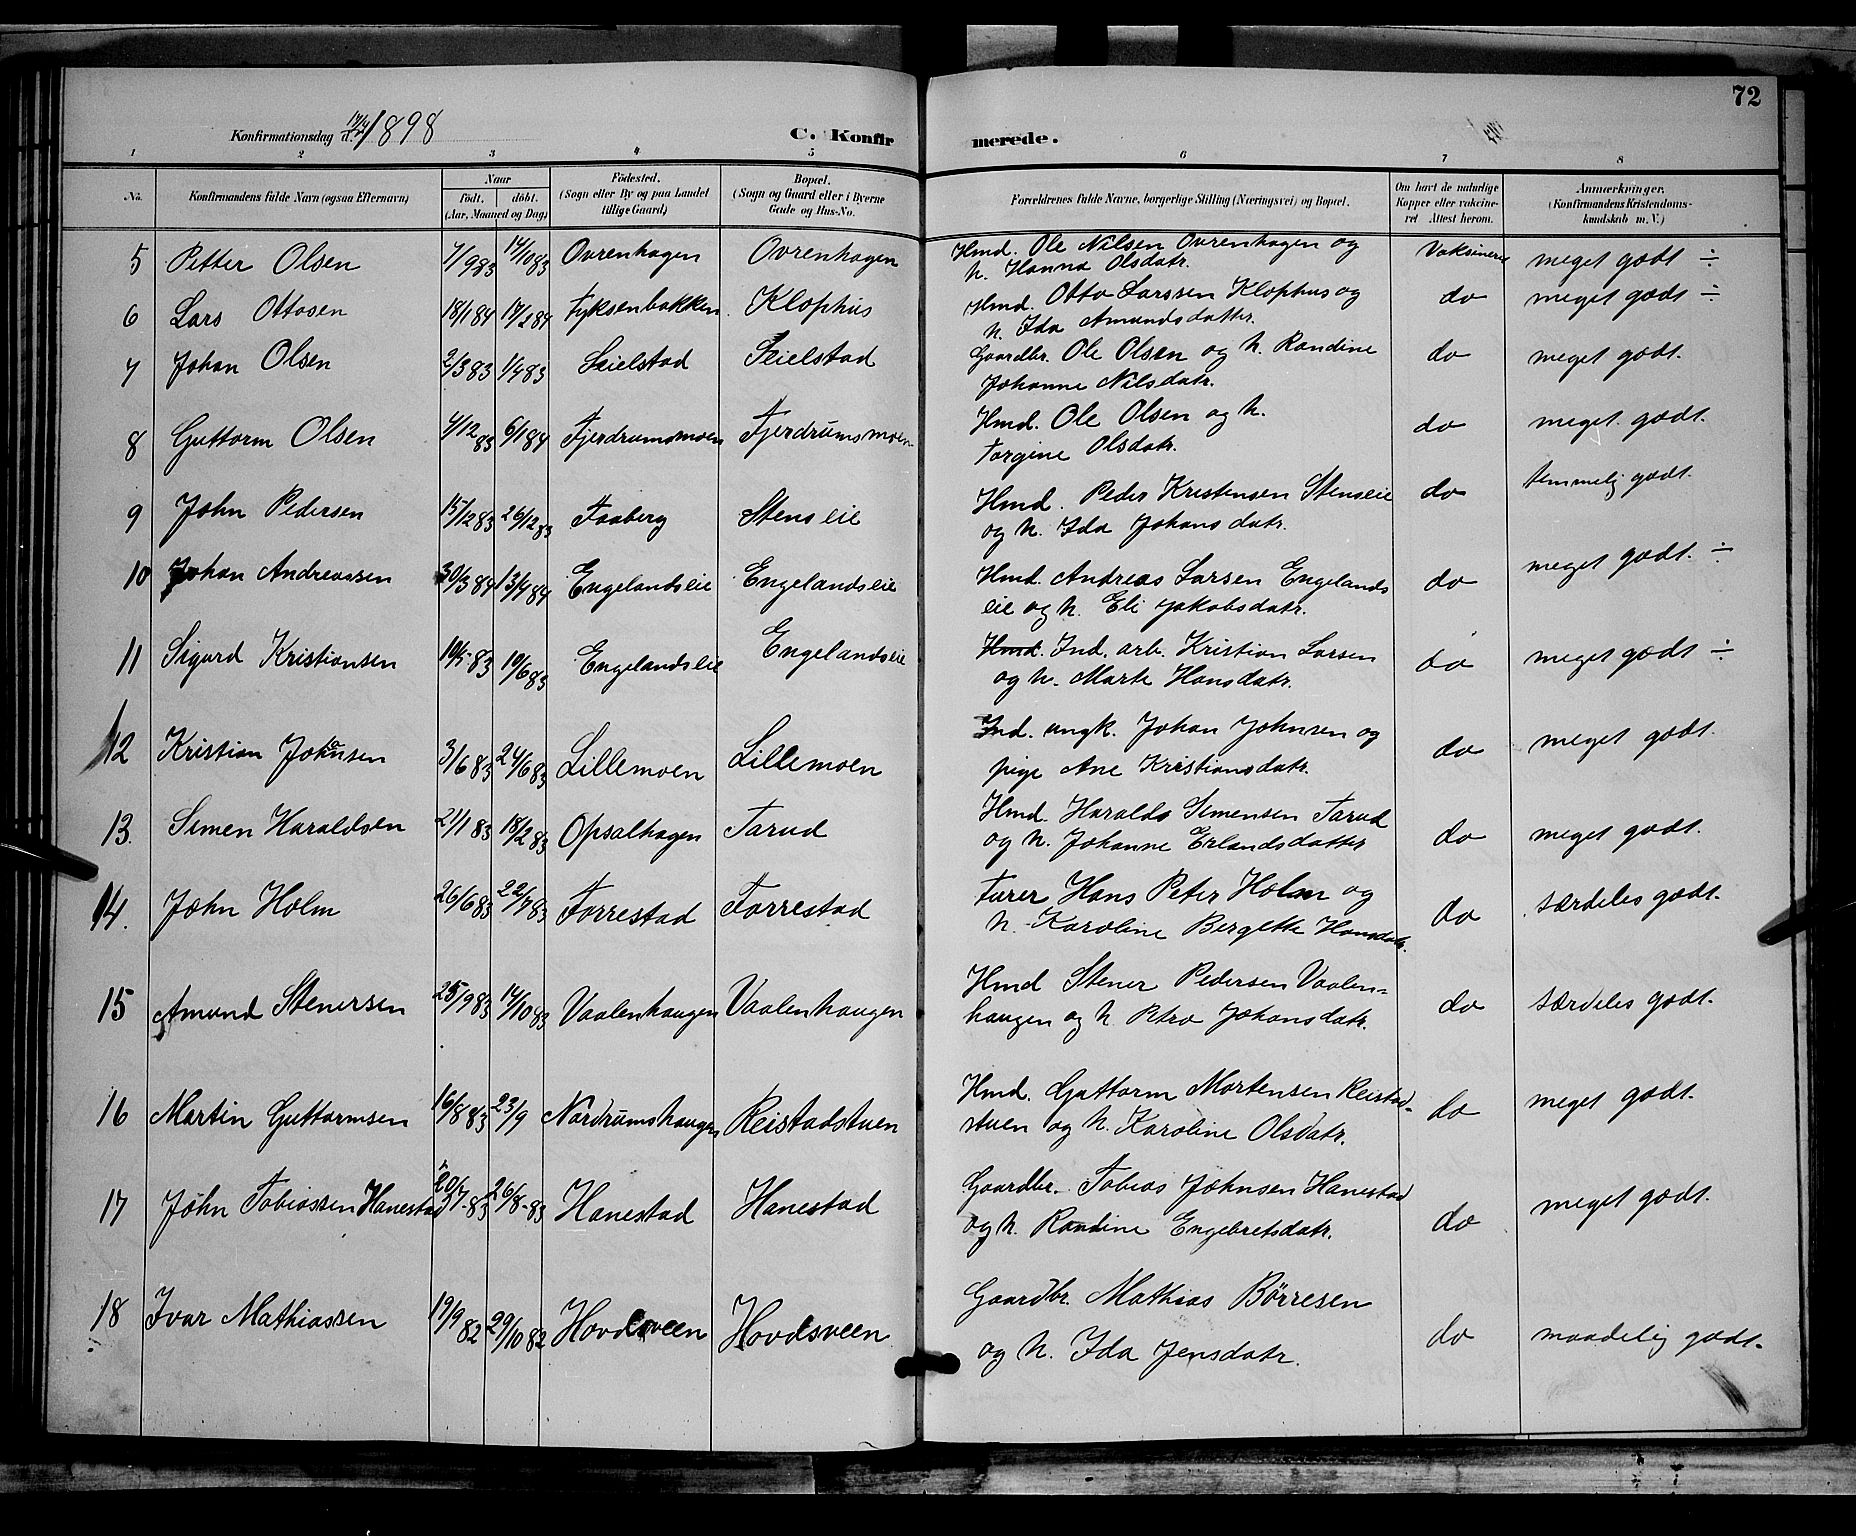 72
Konfirmationsdag d. 17/4 1898
C. Konfirmerede.
1 2 3 4 5 6 7 8
No. Konfirmandens fulde Navn (ogsaa Efternavn) Naar født. døbt. (Aar, Maaned og Dag) Fødested. (Sogn eller By og paa Landet tillige Gaard) Bopæl. (Sogn og Gaard eller i Byerne Gade og Hus-No. Forældrenes fulde Navne, borgerlige Stilling (Næringsvei) og Bopæl. Om havt de naturlige Kopper eller vakcineret Attest herom. Anmærkninger. (Konfirmandens Kristendomskundskab m. V.)
5 Petter Olsen 7/9 83 14/10 83 Ovrenhagen Ovrenhagen Hmd. Ole Nilsen Ovrenhagen og Vaksineret meget godt ÷
h. Hanna Olsdatr.
6 Lars Ottosen 18/1 84 17/2 84 Fyksenbakken Klophus Hmd. Otto Larssen Klophus og do meget godt ÷
h. Ida Amundsdatter.
7 Johan Olsen 2/3 83 1/4 83 Skielstad Skielstad Gaardbr. Ole Olsen og h. Randine do meget godt.
Johanne Nilsdatr.
8 Guttorm Olsen 4/12 83 6/1 84 Fjerdrumsmoen Fjerdrumsmoen Hmd. Ole Olsen og h. do meget godt.
Torgine Olsdatr.
9 John Pedersen 15/12 83 26/12 83 Faaberg Stenseie Hmd. Peder Kristensen Stenseie do temmelig godt.
og h. Ida Johansdatr.
10 Johan Andreassen 30/3 84 13/4 84 Engelandseie Engelandseie Hmd. Andreas Larsen Engelands do meget godt. ÷
eie og h. Eli Jakobsdatr.
11 Sigurd Kristiansen 10/5 83 10/6 83 Engelandseie Engelandseie Hmd. Ind. arb. Kristian Larsen do meget godt ÷
og h. Marte Hansdatr.
12 Kristian Johansen 3/6 83 24/6 83 Lillemoen Lillemoen Ind. ungk. Johan Johnsen og do meget godt.
pige Ane Kristiansdatr.
13. Simen Haraldsen 21/1 83 18/2 83 Opsalhagen Tarud Hmd. Harald Simensen Tarud do meget godt.
og h. Johanne Erlandsdatter
14. John Holm 26/6 83 22/7 83 Forrestad Forrestad Furer Hans Peter Holm og do særdeles godt.
h. Karoline Bergette Hansdatr.
15 Amund Stenersen 25/9 83 14/10 83 Vaalenhaugen Vaalenhaugen Hmd Stener Pedersen Vaalen= do særdeles godt.
haugen og h. Petra Johansdatr.
16 Martin Guttormsen 16/8 83 23/9 Nordrumshaugen Reistadstuen Hmd. Guttorm Mortensen Reistad- do meget godt.
stuen og h. Karoline Olsdatr.
17 John Tobiassen Hanestad 20/7-83 26/8-83 Hanestad Hanestad Gaardbr. Tobias Johnsen Hanestad do meget godt.
og h. Randine Engebretsdatr.
18 Ivar Mathiassen 19/9 82 29/10 82 Hovdsveen Hovdsveen Gaardbr. Mathias Børresen do maadelig godt.
og h. Ida Jensdatr.